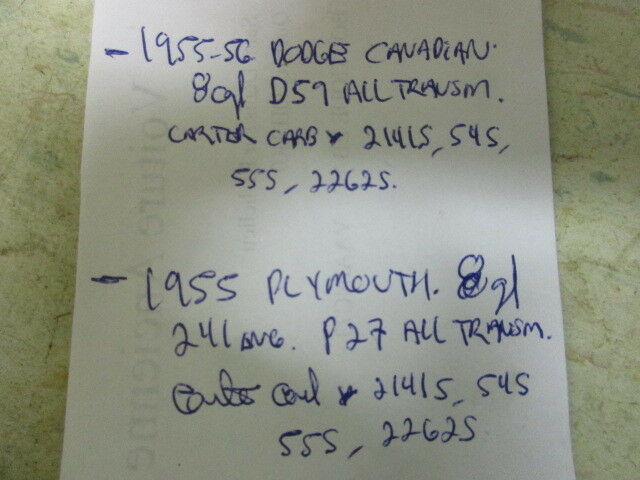 - 1955-56 DODGE CANADIAN.
8cyl D59 ALL TRANSM.
CARTER CARB 2141S, 54S,
55S, 2262S.
- 1955 PLYMOUTH. 8cyl
241 ENG. P27 ALL TRANSM.
Carter Carb 2141S, 54S
55S, 2262S